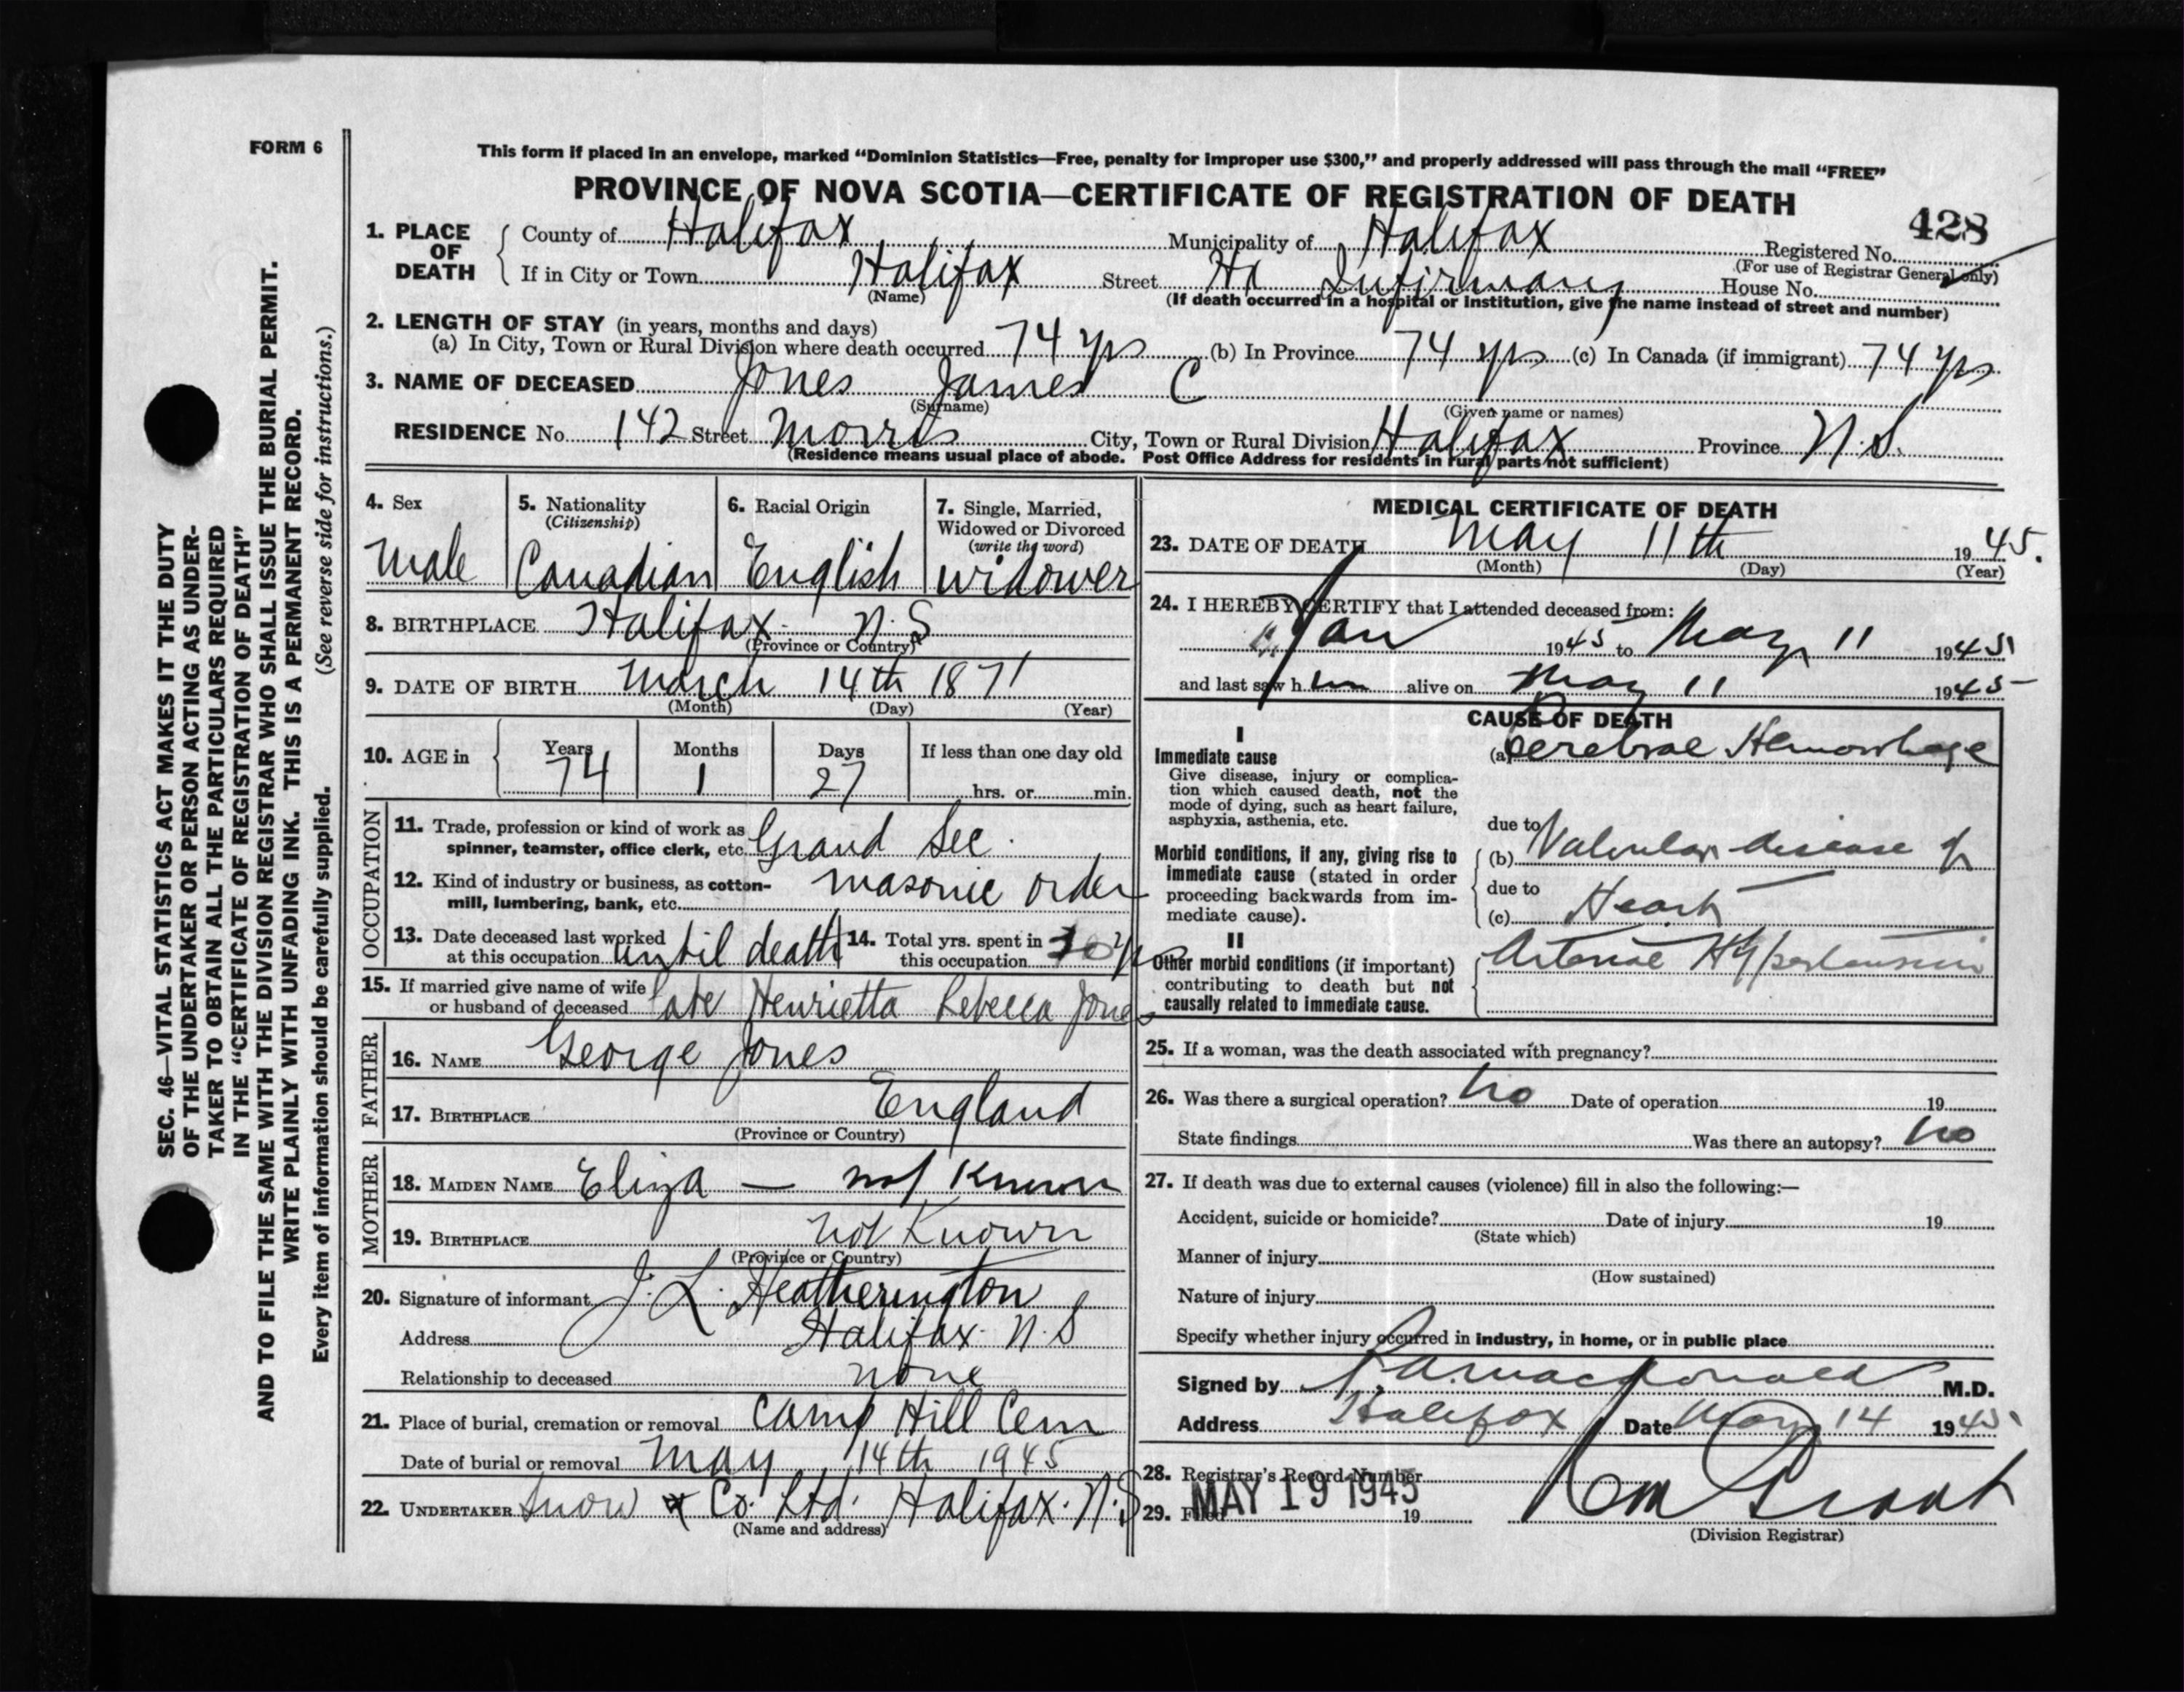 FORM 6
This form if placed in an envelope, marked “Dominion Statistics—Free, penalty for improper use $300,” and properly addressed will pass through the mail “FREE”
PROVINCE OF NOVA SCOTIA—CERTIFICATE OF REGISTRATION OF DEATH
428
1. PLACE OF DEATH
County of Halifax Municipality of Halifax Registered No.
(For use of Registrar General only)
If in City or Town Halifax Street Hx Infirmary House No.
(Name) (If death occurred in a hospital or institution, give the name instead of street and number)
2. LENGTH OF STAY (in years, months and days)
(a) In City, Town or Rural Division where death occurred 74 yrs (b) In Province 74 yrs (c) In Canada (if immigrant) 74 yrs
3. NAME OF DECEASED Jones James C
(Surname) (Given name or names)
RESIDENCE No. 142 Street Morris City, Town or Rural Division Halifax Province N.S.
(Residence means usual place of abode. Post Office Address for residents in rural parts not sufficient)
4. Sex
Male
5. Nationality
(Citizenship)
Canadian
6. Racial Origin
English
7. Single, Married,
Widowed or Divorced
(write the word)
widower
8. BIRTHPLACE Halifax N.S
(Province or Country)
9. DATE OF BIRTH March 14th 1871
(Month) (Day) (Year)
10. AGE in
Years Months Days If less than one day old
74 1 27 hrs. or min.
OCCUPATION
11. Trade, profession or kind of work as
spinner, teamster, office clerk, etc. Grand Sec.
12. Kind of industry or business, as cotton-
mill, lumbering, bank, etc. masonic order
13. Date deceased last worked
at this occupation until death
14. Total yrs. spent in
this occupation yrs
15. If married give name of wife
or husband of deceased late Henrietta Rebecca Jones
FATHER
16. NAME George Jones
17. BIRTHPLACE England
(Province or Country)
MOTHER
18. MAIDEN NAME Eliza — not known
19. BIRTHPLACE not Known
(Province or Country)
20. Signature of informant J. L. Heatherington
Address Halifax N.S
Relationship to deceased none
21. Place of burial, cremation or removal Camp Hill Cem
Date of burial or removal May 14th 1945
22. UNDERTAKER Snow & Co. Ltd. Halifax. N.S
(Name and address)
MEDICAL CERTIFICATE OF DEATH
23. DATE OF DEATH May 11th 1945.
(Month) (Day) (Year)
24. I HEREBY CERTIFY that I attended deceased from:
Jan 1945 to May 11 1945
and last saw him alive on May 11 1945
CAUSE OF DEATH
I
Immediate cause
Give disease, injury or complica-
tion which caused death, not the
mode of dying, such as heart failure,
asphyxia, asthenia, etc.
(a) Cerebral Hemorrhage
due to
Morbid conditions, if any, giving rise to
immediate cause (stated in order
proceeding backwards from im-
mediate cause).
(b) Valvular disease of
due to
(c) Heart
II
Other morbid conditions (if important)
contributing to death but not
causally related to immediate cause.
Arterial Hypertension
25. If a woman, was the death associated with pregnancy?
26. Was there a surgical operation? no Date of operation 19
State findings Was there an autopsy? no
27. If death was due to external causes (violence) fill in also the following:—
Accident, suicide or homicide? Date of injury 19
(State which)
Manner of injury
(How sustained)
Nature of injury
Specify whether injury occurred in industry, in home, or in public place
Signed by MacDonald M.D.
Address Halifax Date May 14 1945
28. Registrar's Record Number
29. Filed MAY 19 1945 19
(Division Registrar)
SEC. 46—VITAL STATISTICS ACT MAKES IT THE DUTY
OF THE UNDERTAKER OR PERSON ACTING AS UNDER-
TAKER TO OBTAIN ALL THE PARTICULARS REQUIRED
IN THE “CERTIFICATE OF REGISTRATION OF DEATH”
AND TO FILE THE SAME WITH THE DIVISION REGISTRAR WHO SHALL ISSUE THE BURIAL PERMIT.
WRITE PLAINLY WITH UNFADING INK. THIS IS A PERMANENT RECORD.
Every item of information should be carefully supplied. (See reverse side for instructions.)